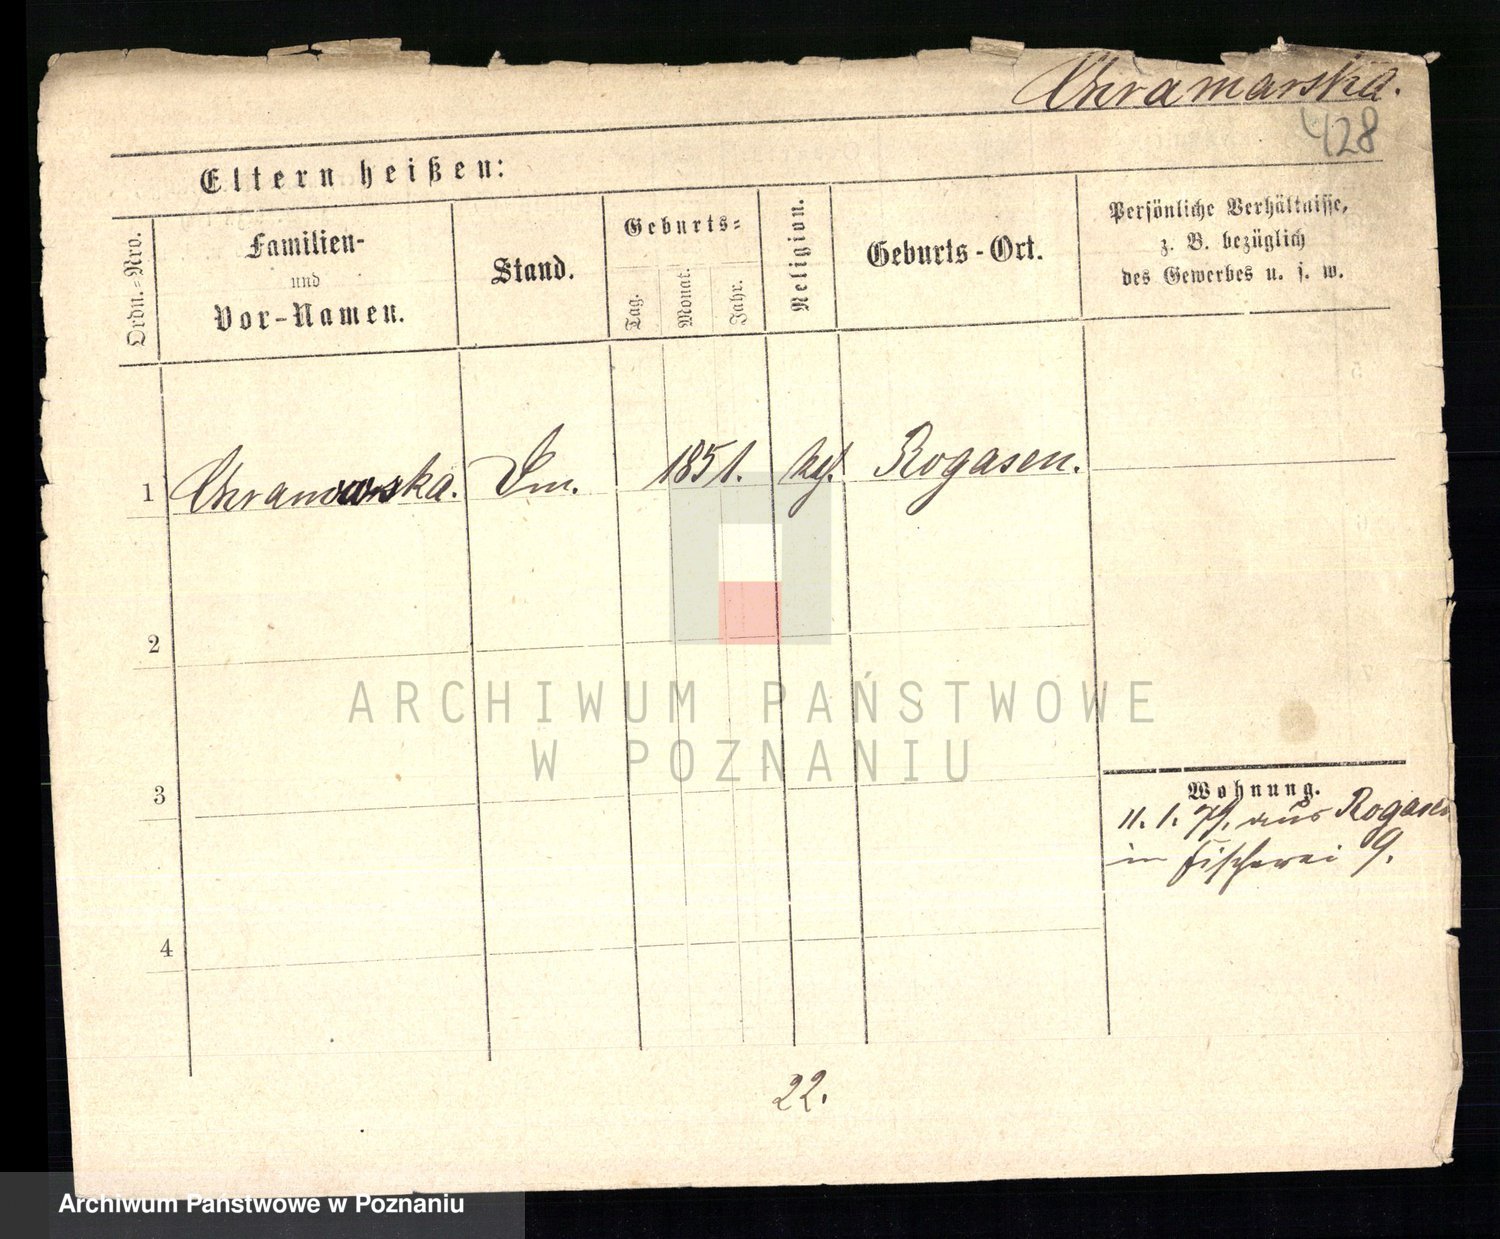 Chramarska.
428
Eltern heißen:
Ordn.-Nro.
Familien-
und
Vor-Namen.
Stand.
Geburts-
Tag.
Monat.
Jahr.
Religion.
Geburts-Ort.
Persönliche Verhältnisse,
z. B. bezüglich
des Gewerbes u. s. w.
1 1851. Rogasen.
2
3
4
Wohnung.
11. 1. 79. aus Rogasen
in Fischerei 9.
22.
ARCHIWUM PAŃSTWOWE
W POZNANIU
Archiwum Państwowe w Poznaniu